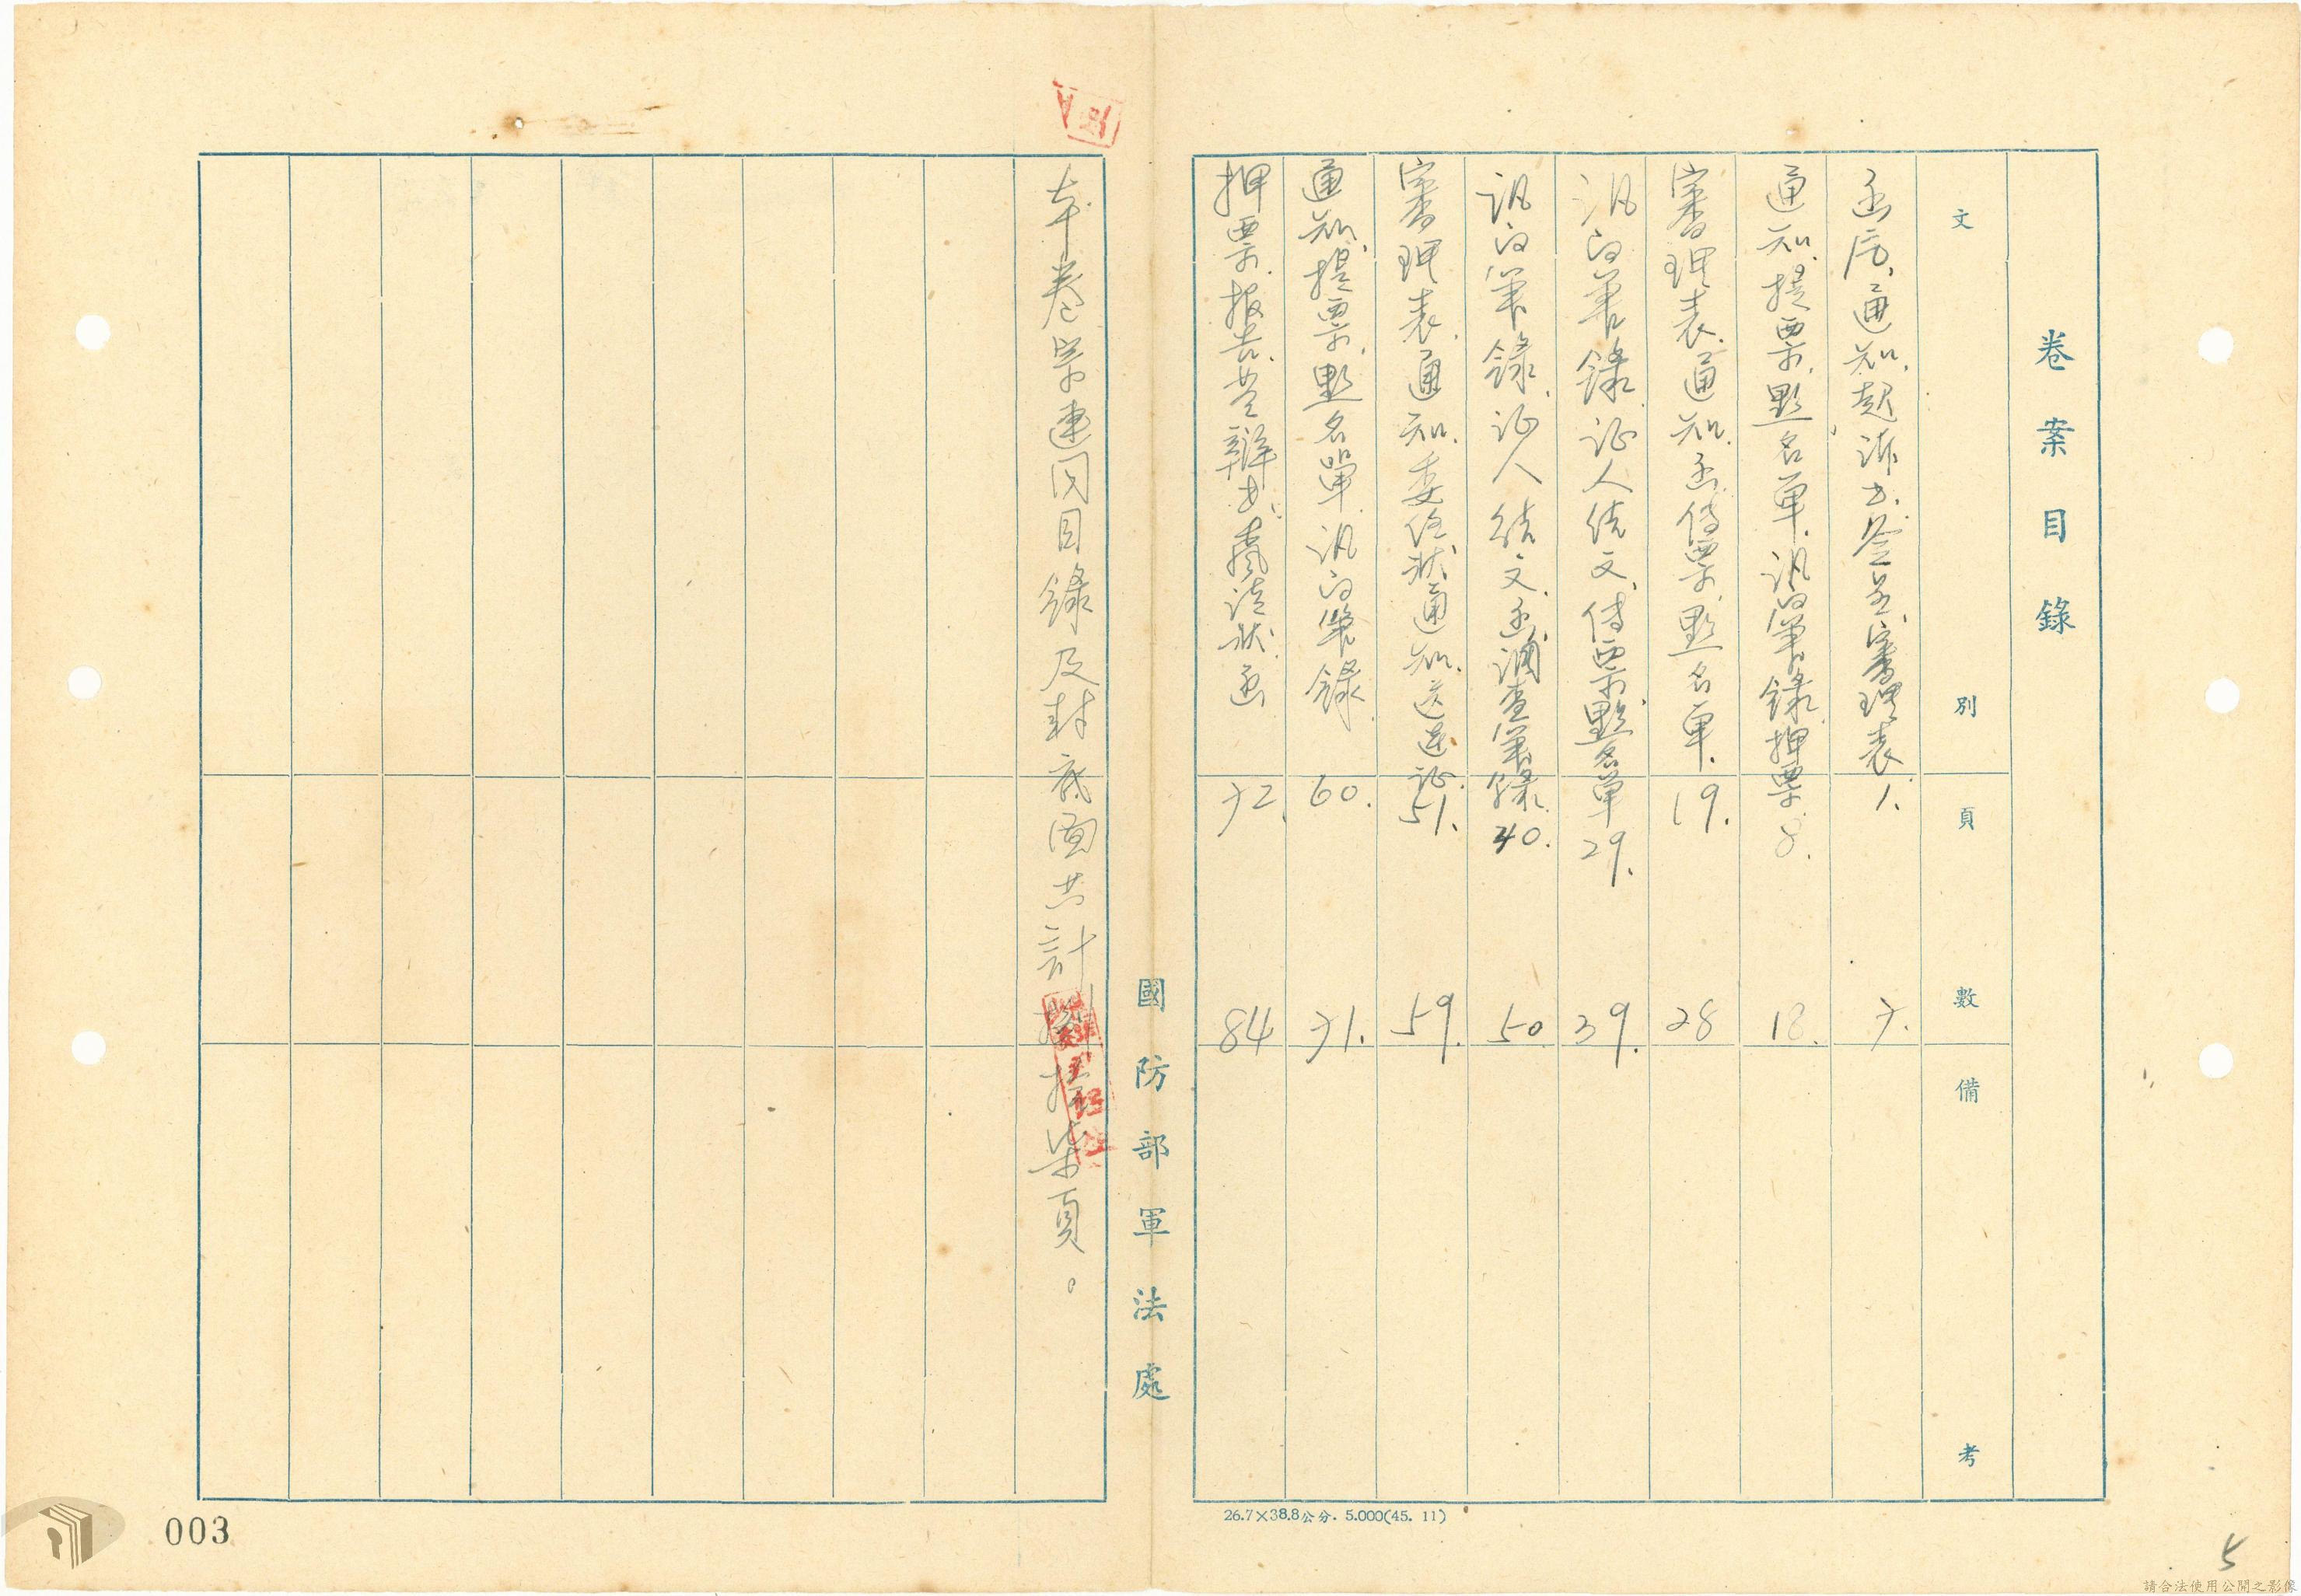 卷案目錄
文別
頁數
備考
函片、通知、起訴书、簽呈、審理表、1. 7.
通知、提票、點名单、訊问筆錄、押票 8. 18.
審理表、通知、函、傳票、點名单、19. 28
訊问筆錄、证人结文、傳票、點名单 29. 39.
訊问筆錄、证人结文、函、調查筆錄、40. 50.
審理表、通知、委任狀、通知、送达证、51. 59.
通知、提票、點名單、訊问筆錄、60. 71.
押票、报告、答辯书、聲请狀、函 72. 84
國防部軍法處
本卷宗連同目錄及封底面共計捌拾柒頁。
26.7×38.8公分. 5.000(45. 11)
003
5
請合法使用公開之影像